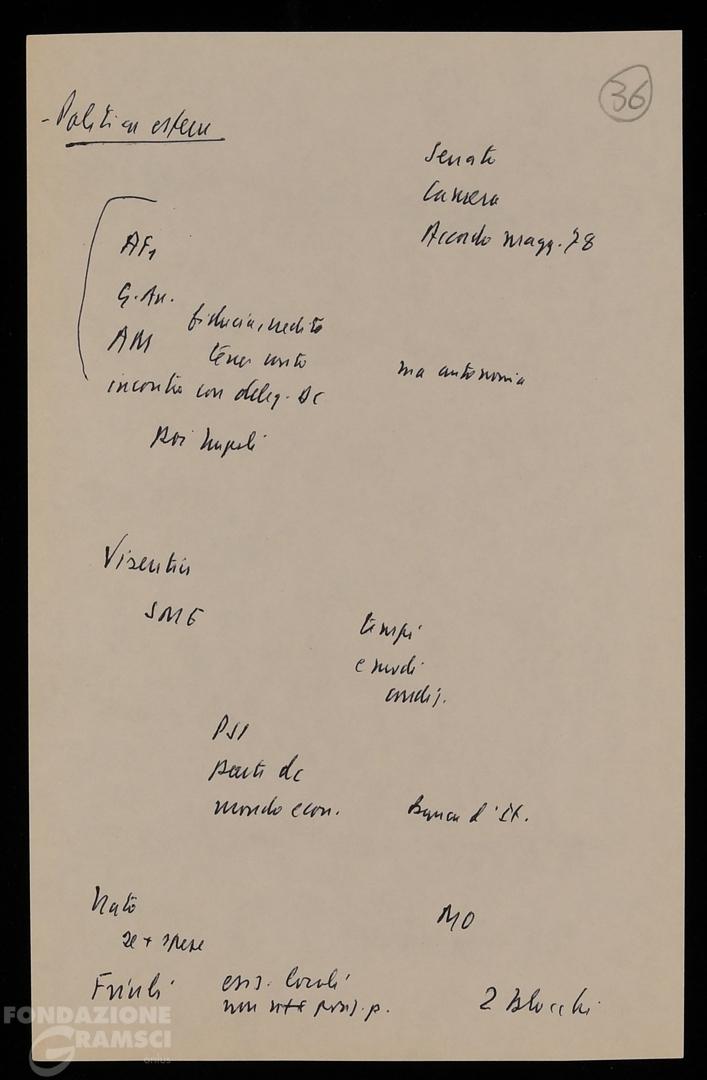 36
- Politica estera
Senato
Camera
Accordo magg. 78
AF,
G. An.
fiducia, credito
AM
tener conto
ma autonomia
incontro con deleg. DC
Poi Napoli
Visentin
SME
tempi
e modi
condiz.
PSI
parte dc
mondo econ.
Banca d'It.
Nato
MO
2e + spese
Friuli
esig. locali
non
2 Blocchi
FONDAZIONE
GRAMSCI
onlus